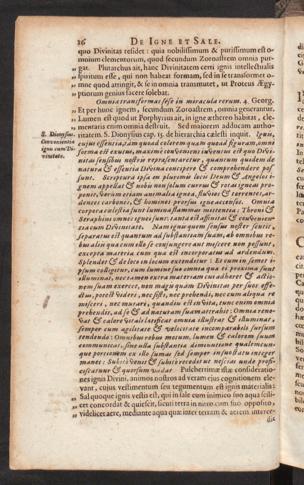 26 DE IGNE ET SALE.
quo Divinitas residet: quia nobilissimum & purissimum est o-
mnium elementorum, quod secundum Zoroastrem omnia pur-
gat. Plutarchus ait, hanc Divinitatem certi ignis intellectualis
spiritum esse, qui non habeat formam, sed in se transformet o-
mne quod attingit, & se in omnia transmutet, ut Proteus Ægy-
ptiorum genius facere solebat.
Omnia transformat sese in miracula rerum. 4. Georg.
Et per hunc ignem, secundum Zoroastrem, omnia generantur.
Lumen est quod ut Porphyrius ait, in igne æthereo habitat, ele-
mentaris enim omnia destruit. Sed majorem adducam autho-
ritatem. S. Dionysius cap. 15. de hierarchia cælesti inquit. Ignis,
S. Dionysius.
Convenientia
ignis cum Di-
vinitate.
cujus essentia, tam quoad colorem quam quoad figuram, omni
forma est exutus, maxime convenit
vinitas sensibus nostris repræsentaretur, quantum quidem de
natura & essentia Divina concipere & comprehendere pos-
sunt. Scriptura ipsa in plurimis locis Deum & Angelos i-
gnem appellat & nobis non solum currus & rotas igneas pro-
ponit, verum etiam animalia ignea, fluvios & torrentes, ar-
dentes carbones, & homines prorsus igne accensos. Omnia
corpora cælestia sunt lumina, flammas mittentia: Throni &
Seraphini omnes ignei sunt; tanta est affinitas & convenien-
tia cum Divinitate. Nam ignis quem sensus noster sentit,
separatus est quantum ad substantiam suam, ab omnibus re-
bus aliis qua cum illo se conjungere aut miscere non possunt,
excepta materia cum qua est incorporatus ad ardendum.
Splendet & de loco in locum extenditur: Et cum in semet i-
psum colligitur, cum lumine suo omnia qua ei proxima sunt
illuminat, nec tamen extra materiam cui adhæret & actio-
nem suam exercet, non magis quam Divinitas per suos effe-
ctus, potest videri, nec sisti, nec prehendi, nec cum aliqua re
misceri, nec mutari, quamdiu est in vita; tunc enim omnia
prehendit, ad se & ad naturam suam attrahit: Omnia reno-
vat & calore vitali lætificat omnia illustrat & illuminat,
semper cum agilitate & velocitate incomparabili sursum
tendendo: Omnibus rebus motum, lumen & calorem suum
communicat, sine ulla substantiæ deminutione qualemcun-
que portionem ex illo sumas sed semper in sua statu integer
manet: Subito venit & subito recedit ut nescias unde profi-
ciscatur & quorsum vadat. Pulcherrimæ istæ consideratio-
nes ignis Divini, animos nostros ad veram ejus cognitionem ele-
vant, cujus vestimentum seu tegumentum est ignis materialis:
Sal quoque ignis vestis est, qui in sale cum inimico suo aqua scili-
cet concordat & quiescit, sicuti terra in nitro cum suo opposito,
videlicet aere, mediante aqua quæ inter terram & aerem interce-
dit